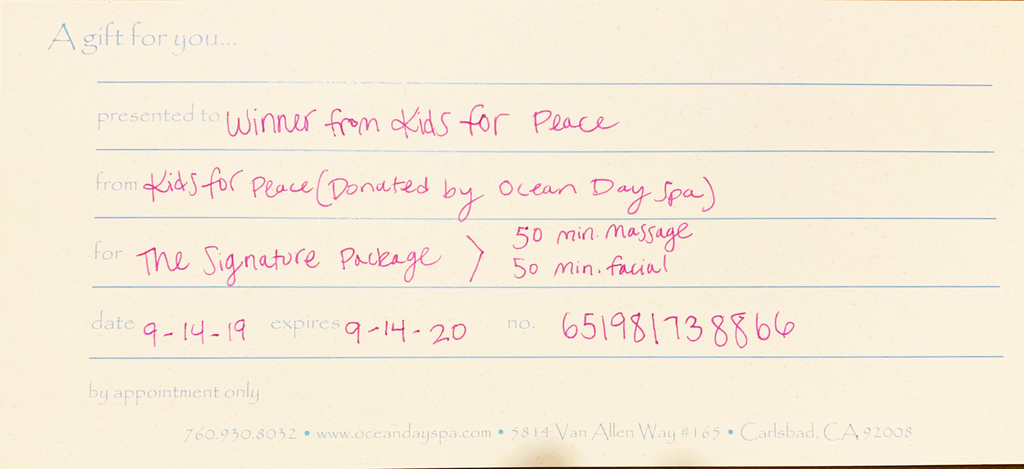 A gift for you...
presented to Winner from Kids for Peace
from Kids for Peace (Donated by Ocean Day Spa)
for The Signature Package > 50 min. massage
50 min. facial
date 9-14-19 expires 9-14-20 no. 651981738866
by appointment only
760.930.8032 • www.oceandayspa.com • 5814 Van Allen Way #165 • Carlsbad, CA 92008